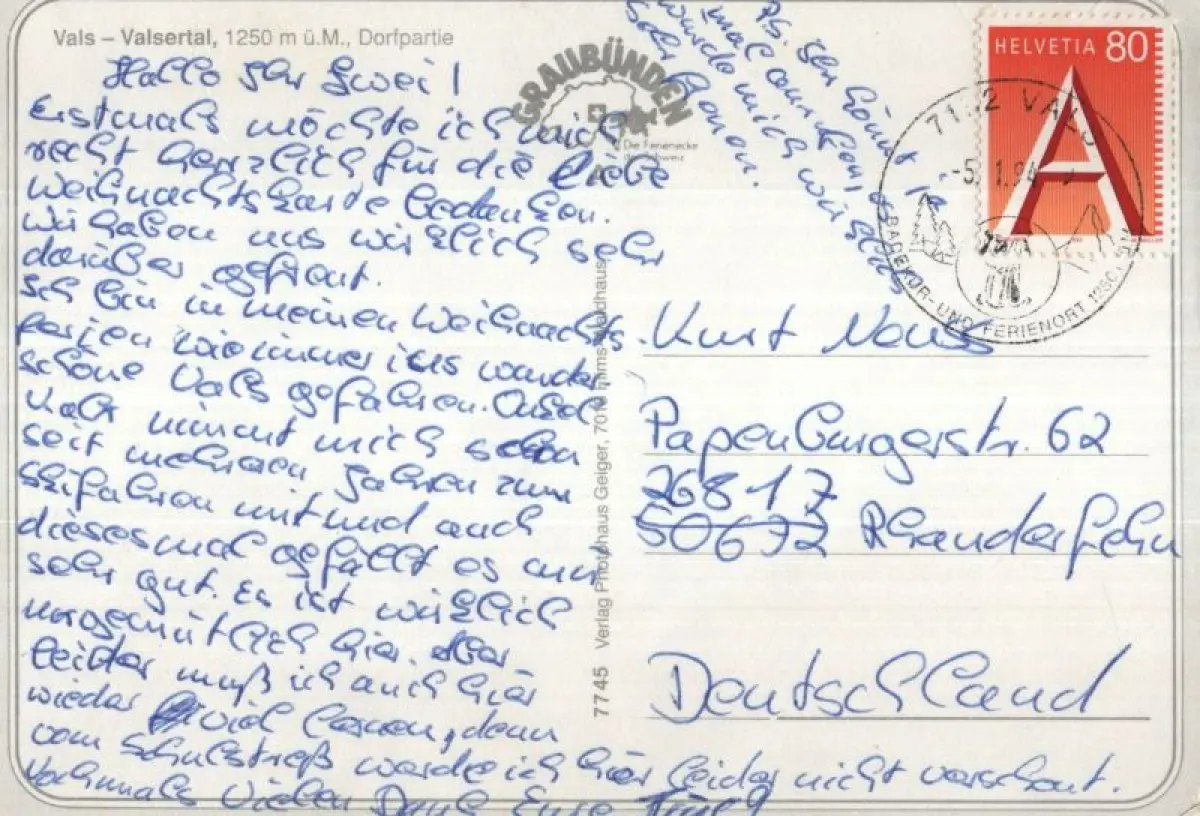 Vals – Valsertal, 1250 m ü.M., Dorfpartie
Hallo Ihr Zwei!
Erstmals möchte ich mich
recht herzlich für die liebe
Weihnachtskarte bedanken.
Wir haben uns wirklich sehr
darüber gefreut.
Ich bin in meinen Weihnachts-
ferien wie immer ins wunder
schöne Vals gefahren. Onkel
nimmt mich schon
seit mehreren Jahren zum
Skifahren mit und auch
diesesmal gefällt es mir
sehr gut. Es ist wirklich
urgemütlich hier. Aber
leider muß ich auch hier
wieder viel lernen, denn
vom Schulstreß werde ich hier leider nicht verschont.
Nochmals Vielen Dank Eure
P.S. Ihr könnt ja
mal anrufen, es
würde mich wirklich
sehr freuen.
GRAUBÜNDEN
Die Ferienecke
der Schweiz
7745 Verlag Photohaus Geiger, 7018 Flims-Waldhaus
HELVETIA 80
A
7132 VALS
-5.-1.94
BADEKUR- UND FERIENORT 1250
Kurt
Papenburgerstr. 62
26817
50672 Rhauderfehn
Deutschland